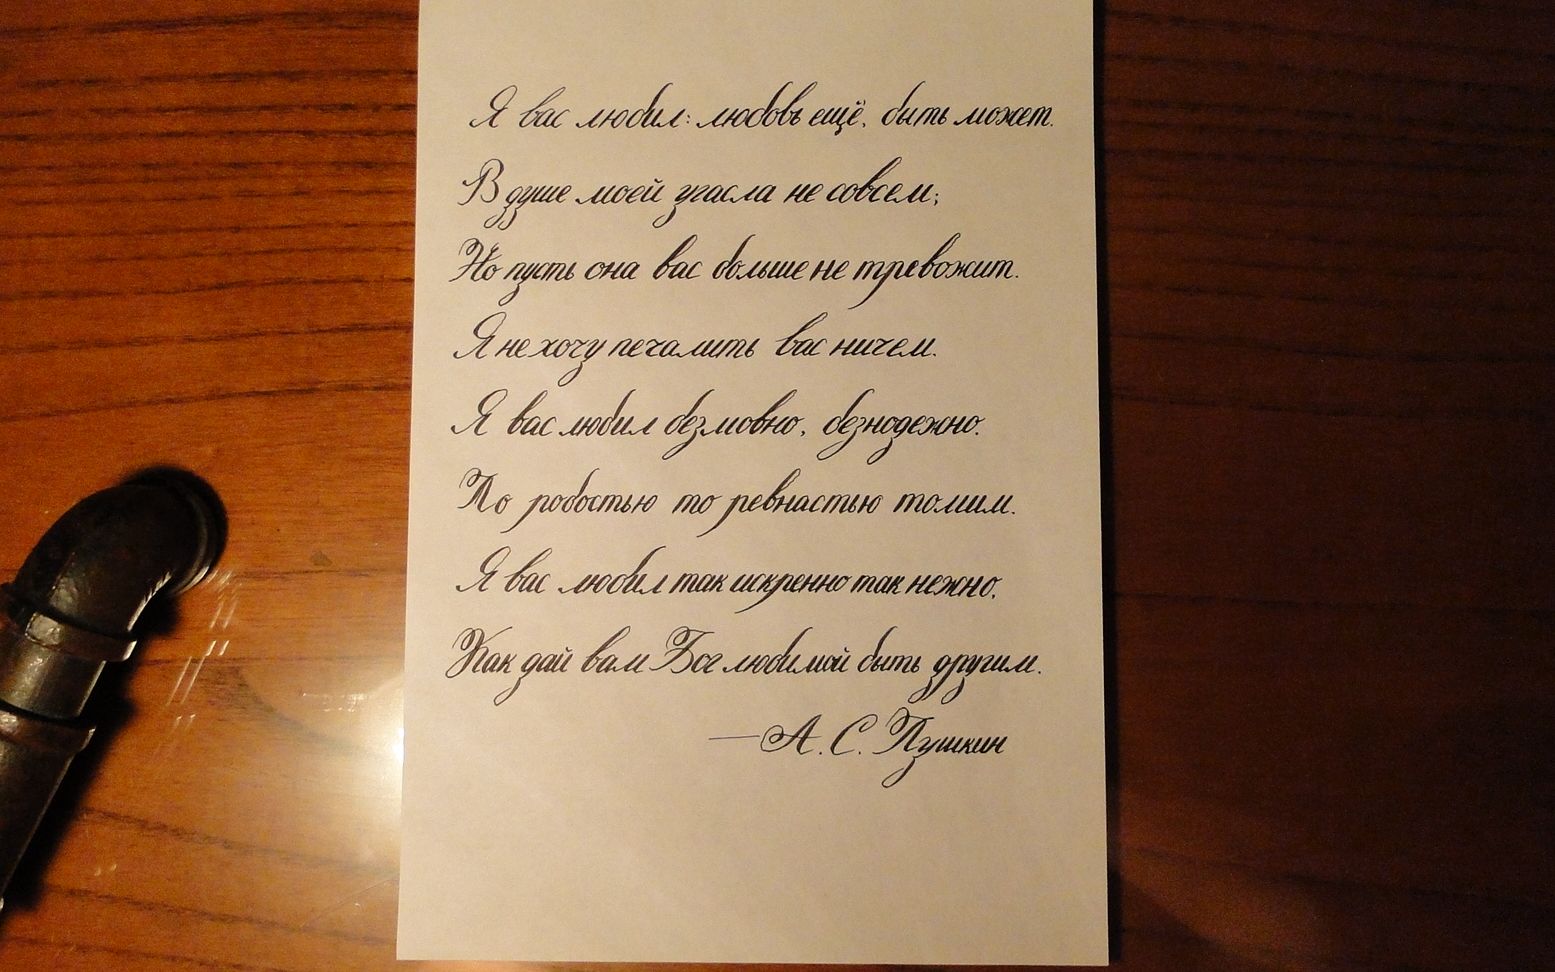 Я вас любил: любовь ещё, быть может.
В душе моей угасла не совсем;
Но пусть она вас больше не тревожит.
Я не хочу печалить вас ничем.
Я вас любил безмовно, безнодежно.
То робостью то ревнастью томим.
Я вас любил так искренно так нежно,
Как дай вам Бог любимой быть другим.
—А. С. Пушкин